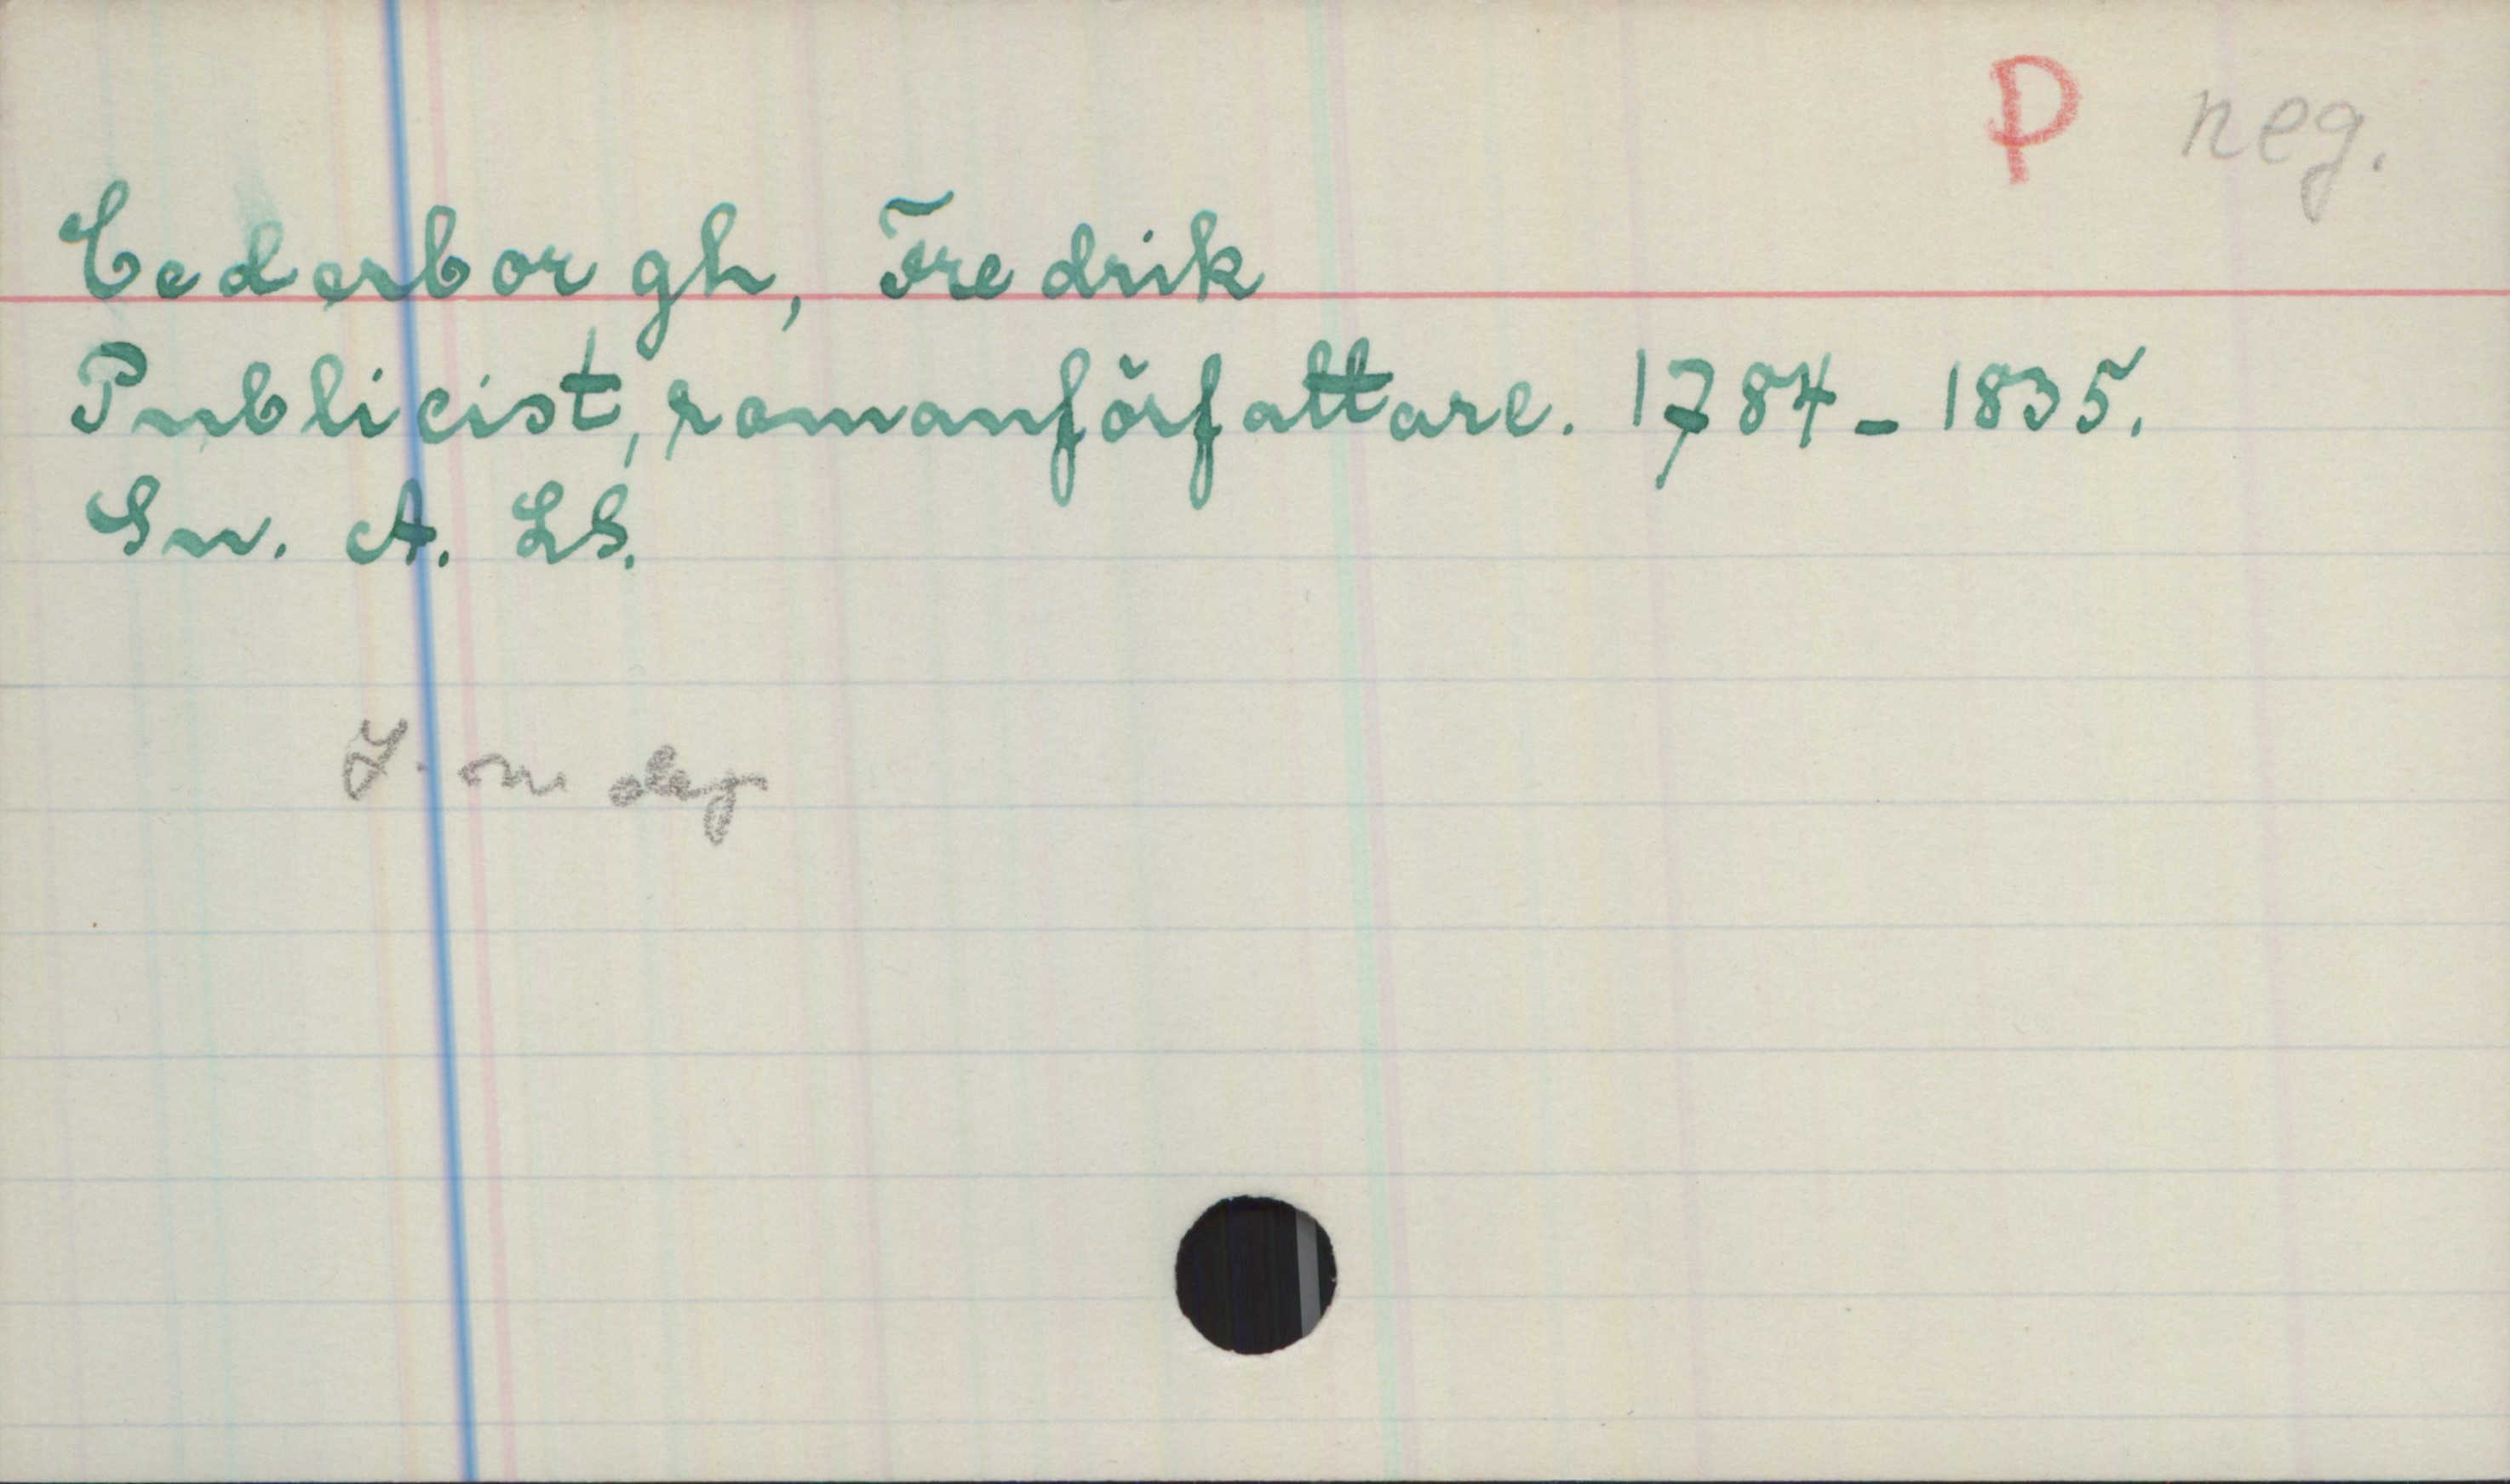 P neg.
Cederborgh, Fredrik
Publicist, romanförfattare. 1784-1835.
Sv. A. LS.